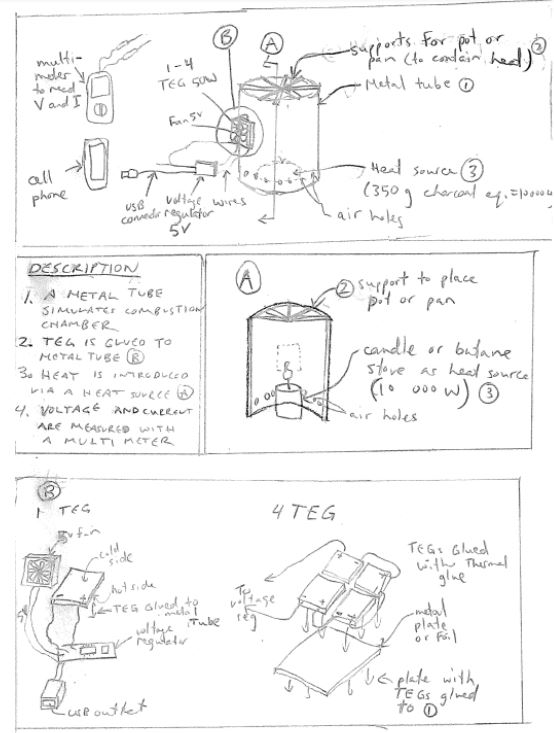 B
A
supports for pot or
pan (to contain heat) 2
multi-
meter
to read
V and I
1-4
TEG 50W
Metal tube 1
Fan 5V
cell
phone
Heat source 3
(350 g charcoal eq. = 10000 W
USB
connector
voltage
regulator
5V
wires
air holes
DESCRIPTION
1. A METAL TUBE
SIMULATES COMBUSTION
CHAMBER
2. TEG IS GLUED TO
METAL TUBE B
3. HEAT IS INTRODUCED
VIA A HEAT SOURCE A
4. VOLTAGE AND CURRENT
ARE MEASURED WITH
A MULTI METER
A
2 support to place
pot or pan
candle or butane
stove as heat source
(10 000 W) 3
air holes
B
1 TEG
5v fan
cold
side
hot side
TEG Glued to
metal
tube
voltage
regulator
5V
USB outlet
4 TEG
TEGs Glued
with Thermal
glue
To
voltage
reg
metal
plate
or foil
plate with
TEGs glued
to 1